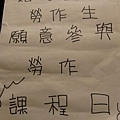 勞作生
願意參與
勞作
課程日